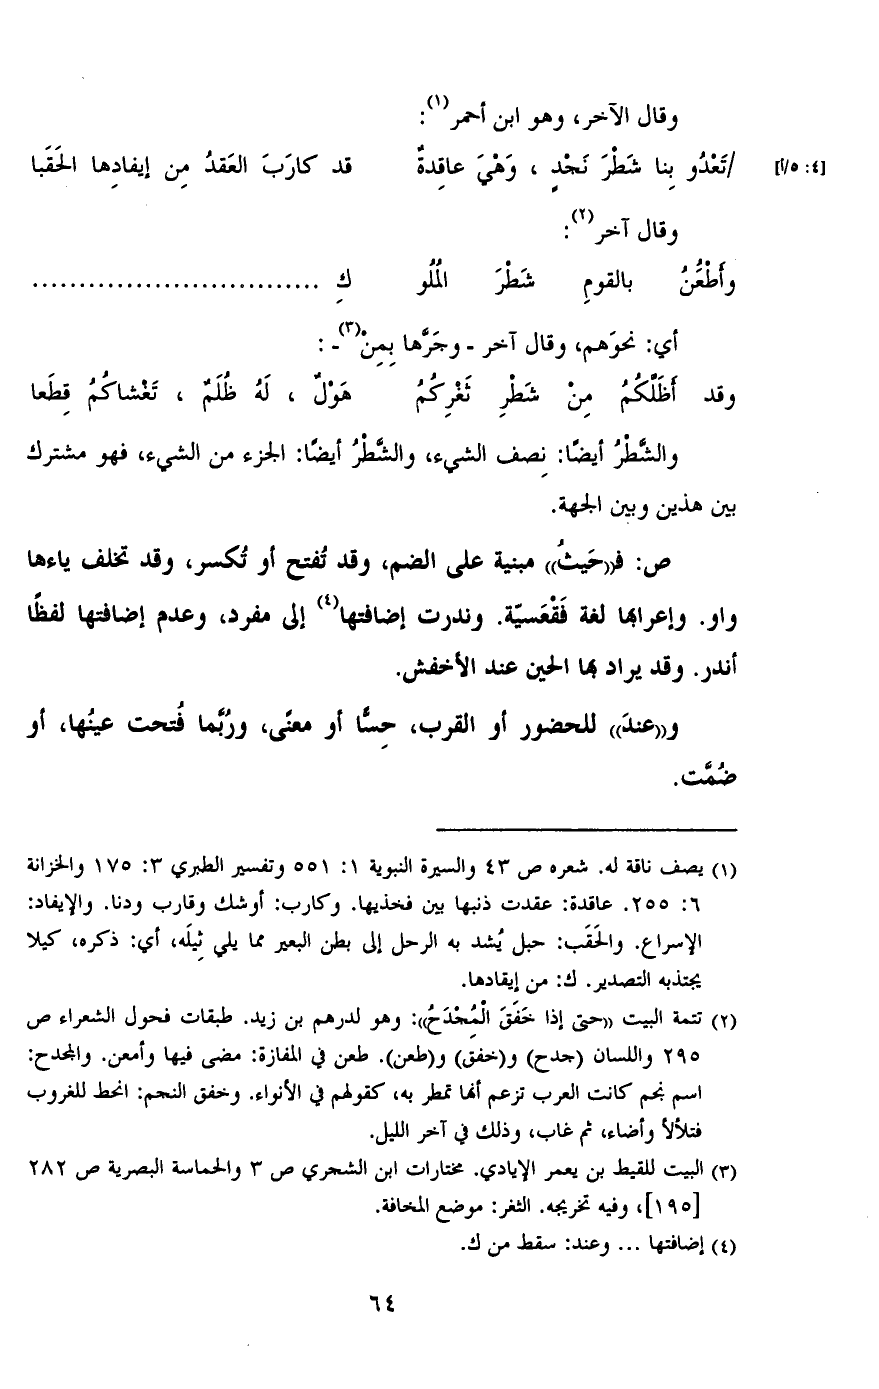 وقال الآخر، وهو ابن أحمر(١):
[٤: ٥/أ] /تَعْدُو بِنا شَطْرَ نَجْدٍ ، وَهْيَ عاقِدةٌ قد كارَبَ العَقدُ مِن إيفادِها الحَقَبا
وقال آخر(٢):
وأَطْعُنُ بالقومِ شَطْرَ المُلُو كِ ..............................
أي: نحوَهم، وقال آخر - وجَرَّها بِمِنْ(٣)- :
وقد أَظَلَّكُمُ مِنْ شَطْرِ ثَغْرِكُمُ هَوْلٌ ، لَهُ ظُلَمٌ ، تَغْشاكُمُ قِطَعا
والشَّطْرُ أيضًا: نِصف الشيء، والشَّطْرُ أيضًا: الجزء من الشيء، فهو مشترك
بين هذين وبين الجهة.
ص: فـ((حَيثُ)) مبنية على الضم، وقد تُفتح أو تُكسر، وقد تخلف ياءها
واو. وإعرابها لغة فَقْعَسيّة. وندرت إضافتها(٤) إلى مفرد، وعدم إضافتها لفظًا
أندر. وقد يراد بها الحين عند الأخفش.
و((عندَ)) للحضور أو القرب، حِسًّا أو معنًى، ورُبَّما فُتحت عينُها، أو
ضُمَّت.
(١) يصف ناقة له. شعره ص ٤٣ والسيرة النبوية ١: ٥٥١ وتفسير الطبري ٣: ١٧٥ والخزانة
٦: ٢٥٥. عاقدة: عقدت ذنبها بين فخذيها. وكارب: أوشك وقارب ودنا. والإيفاد:
الإسراع. والحَقَب: حبل يُشد به الرحل إلى بطن البعير مما يلي ثِيلَه، أي: ذكره، كيلا
يجتذبه التصدير. ك: من إيقادها.
(٢) تتمة البيت ((حتى إذا خَفَقَ الْمِجْدَحُ)): وهو لدرهم بن زيد. طبقات فحول الشعراء ص
٢٩٥ واللسان (جدح) و(خفق) و(طعن). طعن في المفازة: مضى فيها وأمعن. والمجدح:
اسم نجم كانت العرب تزعم أنها تمطر به، كقولهم في الأنواء. وخفق النجم: انحط للغروب
فتلألأ وأضاء، ثم غاب، وذلك في آخر الليل.
(٣) البيت للقيط بن يعمر الإيادي. مختارات ابن الشجري ص ٣ والحماسة البصرية ص ٢٨٢
[١٩٥]، وفيه تخريجه. الثغر: موضع المخافة.
(٤) إضافتها ... وعند: سقط من ك.
٦٤